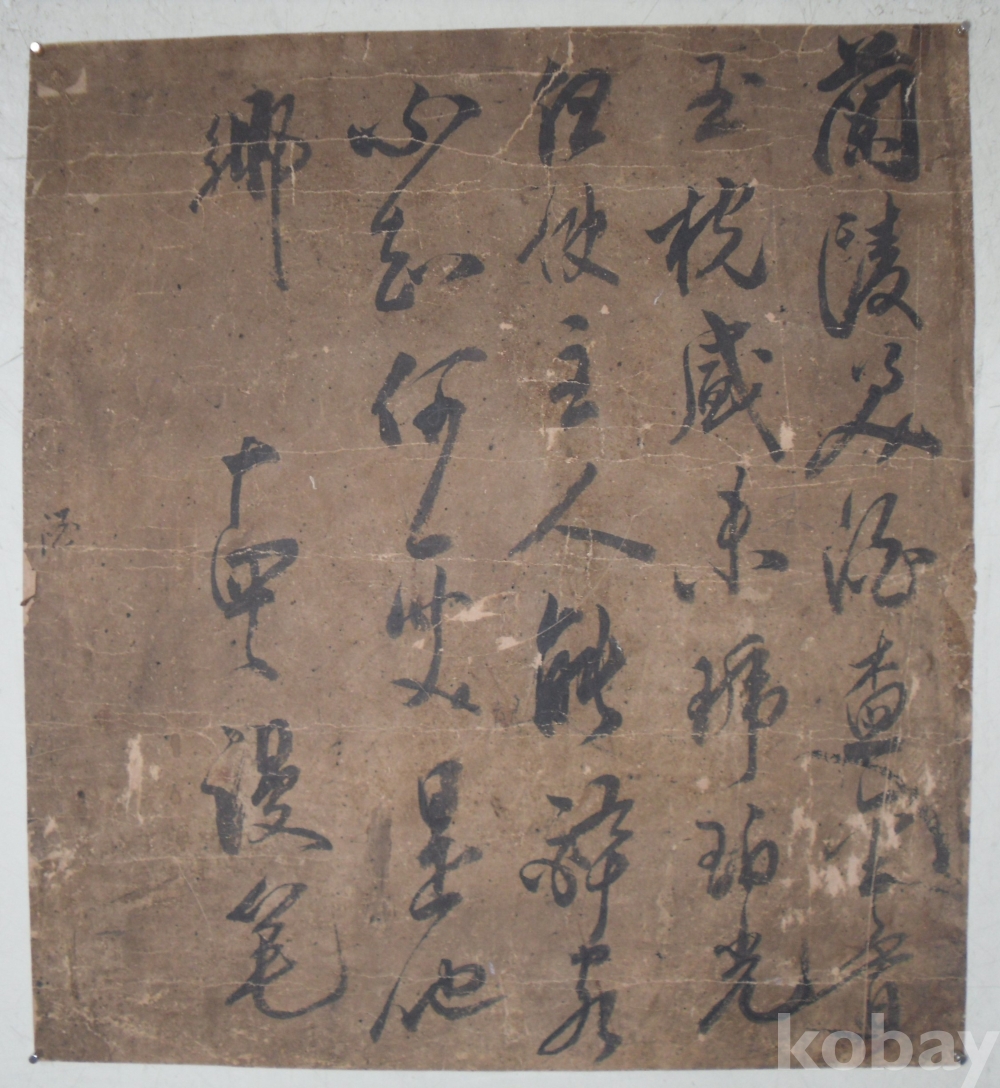 蘭陵美酒鬱金香
玉椀盛來琥珀光
但使主人能醉客
不知何處是他
鄉 漫筆
kobay